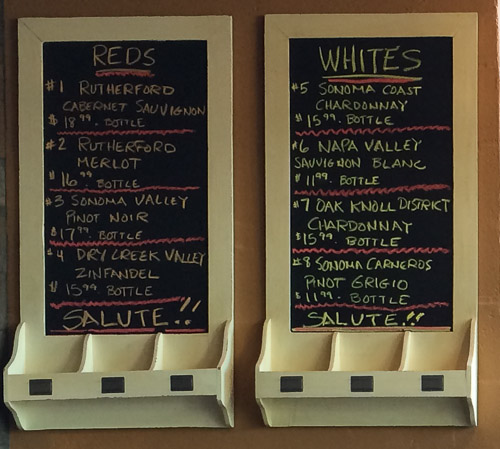 REDS
#1 RUTHERFORD
CABERNET SAUVIGNON
$18.99. BOTTLE
#2 RUTHERFORD
MERLOT
$16.99. BOTTLE
#3 SONOMA VALLEY
PINOT NOIR
$17.99. BOTTLE
#4 DRY CREEK VALLEY
ZINFANDEL
$15.99. BOTTLE
SALUTE!!
WHITES
#5 SONOMA COAST
CHARDONNAY
$15.99. BOTTLE
#6 NAPA VALLEY
SAUVIGNON BLANC
$11.99. BOTTLE
#7 OAK KNOLL DISTRICT
CHARDONNAY
$15.99. BOTTLE
#8 SONOMA CARNEROS
PINOT GRIGIO
$11.99. BOTTLE
SALUTE!!